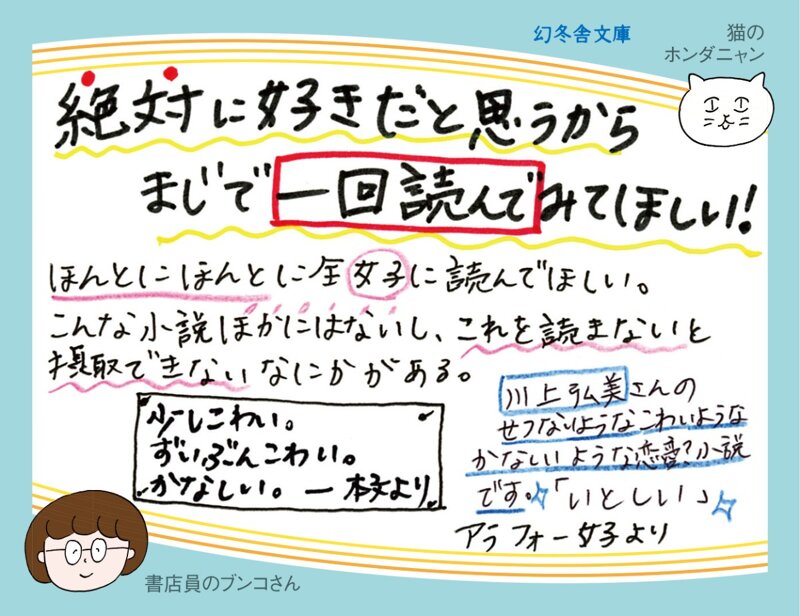 幻冬舎文庫
猫の
ホンダニャン
絶対に好きだと思うから
まじで一回読んでみてほしい!
ほんとにほんとに全女子に読んでほしい。
こんな小説ほかにはないし、これを読まないと
摂取できないなにかがある。
少しこわい。
ずいぶんこわい。
かなしい。―本文より
川上弘美さんの
せつないようなこわいような
かなしいような恋愛?小説
です。「いとしい」
アラフォー女子より
書店員のブンコさん